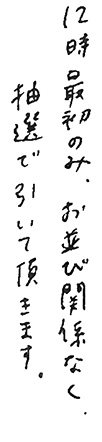 12時最初のみ、お並び関係なく
抽選で引いて頂きます。